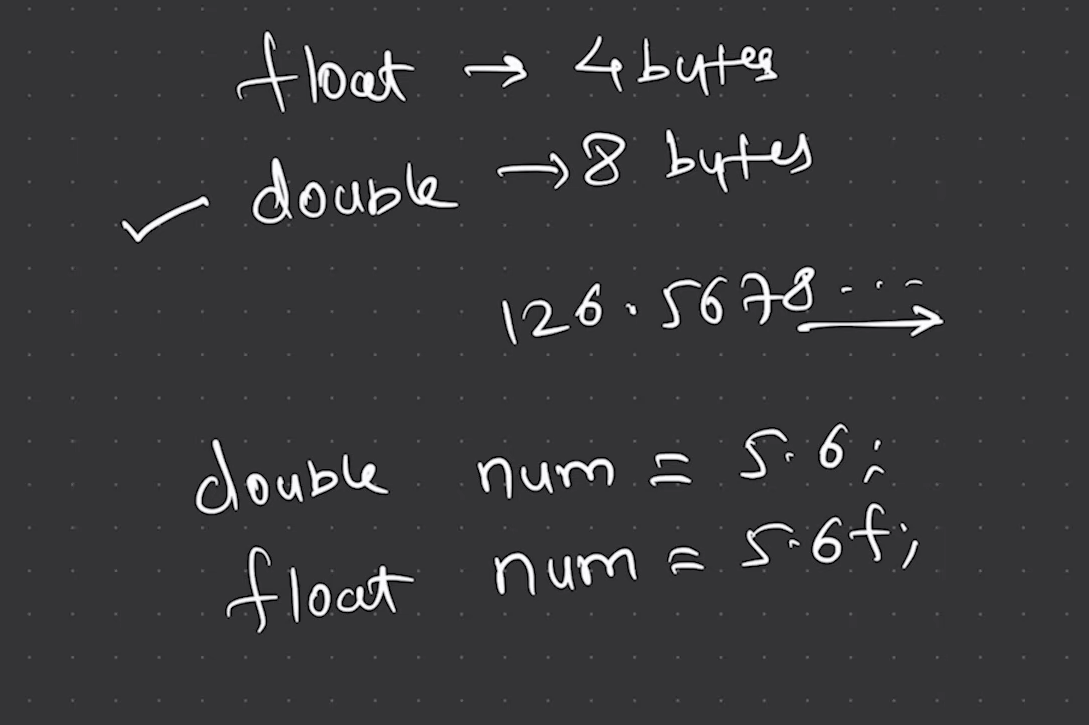 float → 4 bytes
✓ double → 8 bytes
126.5678...
double num = 5.6;
float num = 5.6f;